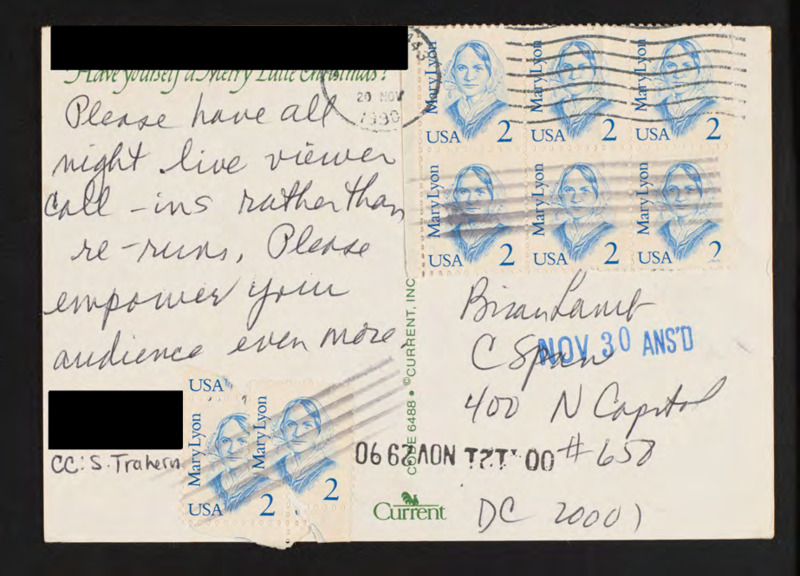 Have yourself a Merry Little Christmas!
Please have all
night live viewer
call-ins rather than
re-runs. Please
empower your
audience even more.
CC: S. Trahern
20 NOV
1990
Mary Lyon
USA 2
Mary Lyon
USA 2
Mary Lyon
USA 2
Mary Lyon
USA 2
Mary Lyon
USA 2
Mary Lyon
USA 2
USA
Mary Lyon
USA 2
Mary Lyon
2
CODE 6488 • ©CURRENT, INC
Brian Lamb
C Span
NOV 30 ANS'D
400 N Capitol
#650
NOV 29 90
DC 20001
Current